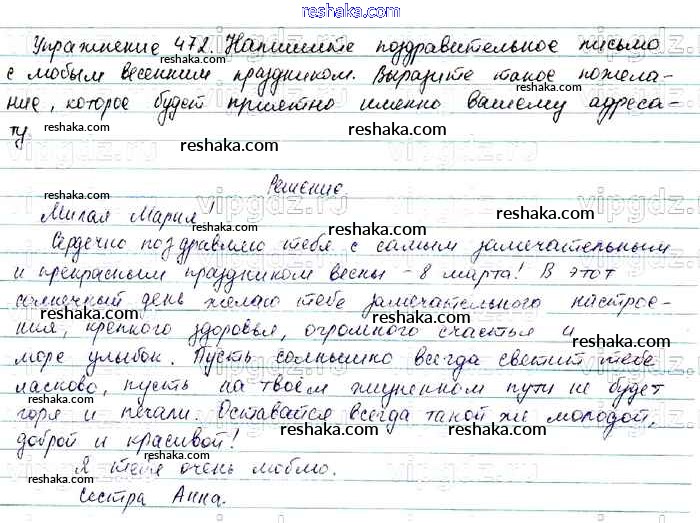 reshaka.com
Упражнение 472. Напишите поздравительное письмо
с любым весенним праздником. Выразите такое пожела-
ние, которое будет приятно именно вашему адреса-
ту.
Решение.
Милая Мария!
Сердечно поздравляю тебя с самым замечательным
и прекрасным праздником весны - 8 марта! В этот
солнечный день желаю тебе замечательного настрое-
ния, крепкого здоровья, огромного счастья и
море улыбок. Пусть солнышко всегда светит тебе
ласково, пусть на твоём жизненном пути не будет
горя и печали. Оставайся всегда такой же молодой,
доброй и красивой!
Я тебя очень люблю.
Сестра Анна.